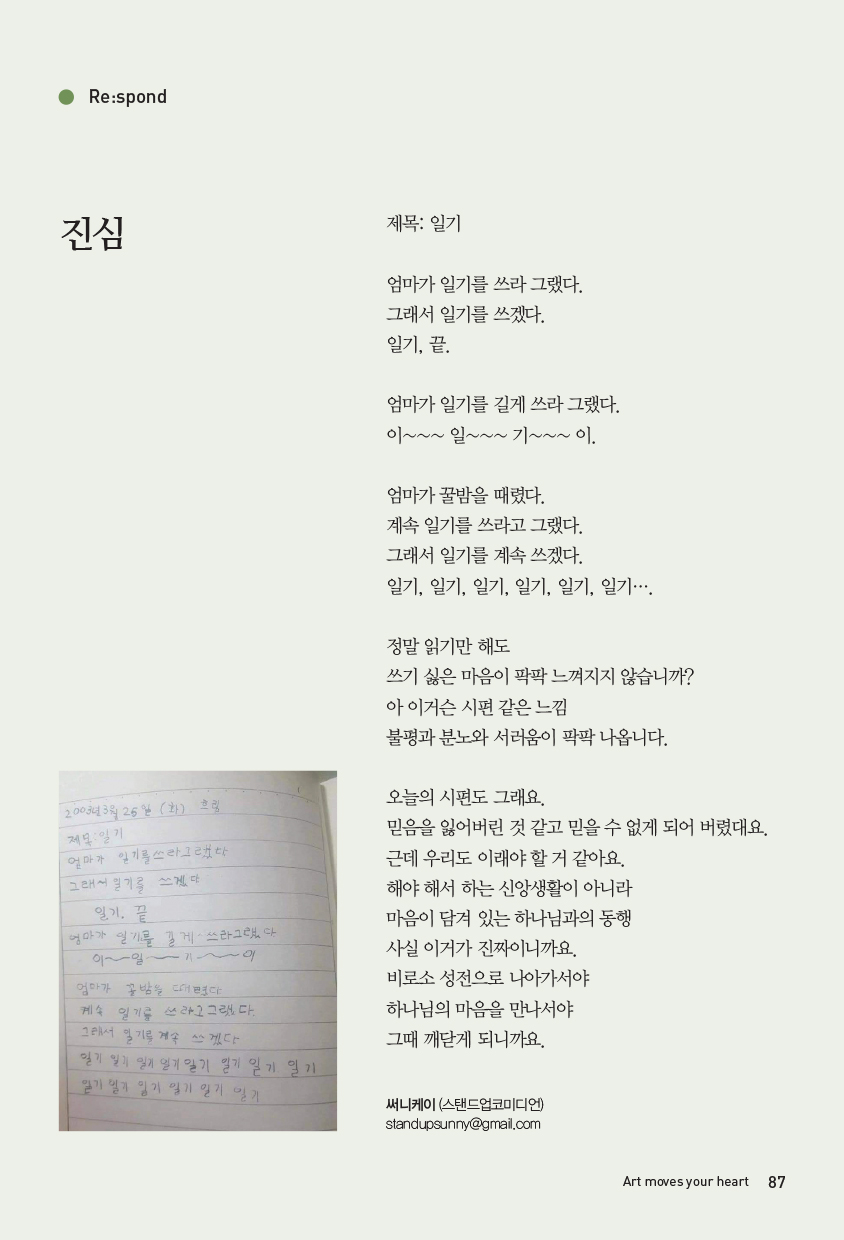 Re:spond
진심
제목: 일기
엄마가 일기를 쓰라 그랬다.
그래서 일기를 쓰겠다.
일기, 끝.
엄마가 일기를 길게 쓰라 그랬다.
이~~~ 일~~~ 기~~~ 이.
엄마가 꿀밤을 때렸다.
계속 일기를 쓰라고 그랬다.
그래서 일기를 계속 쓰겠다.
일기, 일기, 일기, 일기, 일기, 일기….
정말 읽기만 해도
쓰기 싫은 마음이 팍팍 느껴지지 않습니까?
아 이거슨 시편 같은 느낌
불평과 분노와 서러움이 팍팍 나옵니다.
오늘의 시편도 그래요.
믿음을 잃어버린 것 같고 믿을 수 없게 되어 버렸대요.
근데 우리도 이래야 할 거 같아요.
해야 해서 하는 신앙생활이 아니라
마음이 담겨 있는 하나님과의 동행
사실 이거가 진짜이니까요.
비로소 성전으로 나아가서야
하나님의 마음을 만나서야
그때 깨닫게 되니까요.
써니케이 (스탠드업코미디언)
standupsunny@gmail.com
2003년 3월 25일 (화) 흐림
제목: 일기
엄마가 일기를 쓰라그랬다
그래서 일기를 쓰겠다
일기. 끝
엄마가 일기를 길게 쓰라그랬다
이~~일~~기~~이
엄마가 꿀밤을 때렸다
계속 일기를 쓰라고그랬다.
그래서 일기를 계속 쓰겠다
일기 일기 일기 일기 일기 일기 일기 일기
일기 일기 일기 일기 일기 일기
Art moves your heart 87